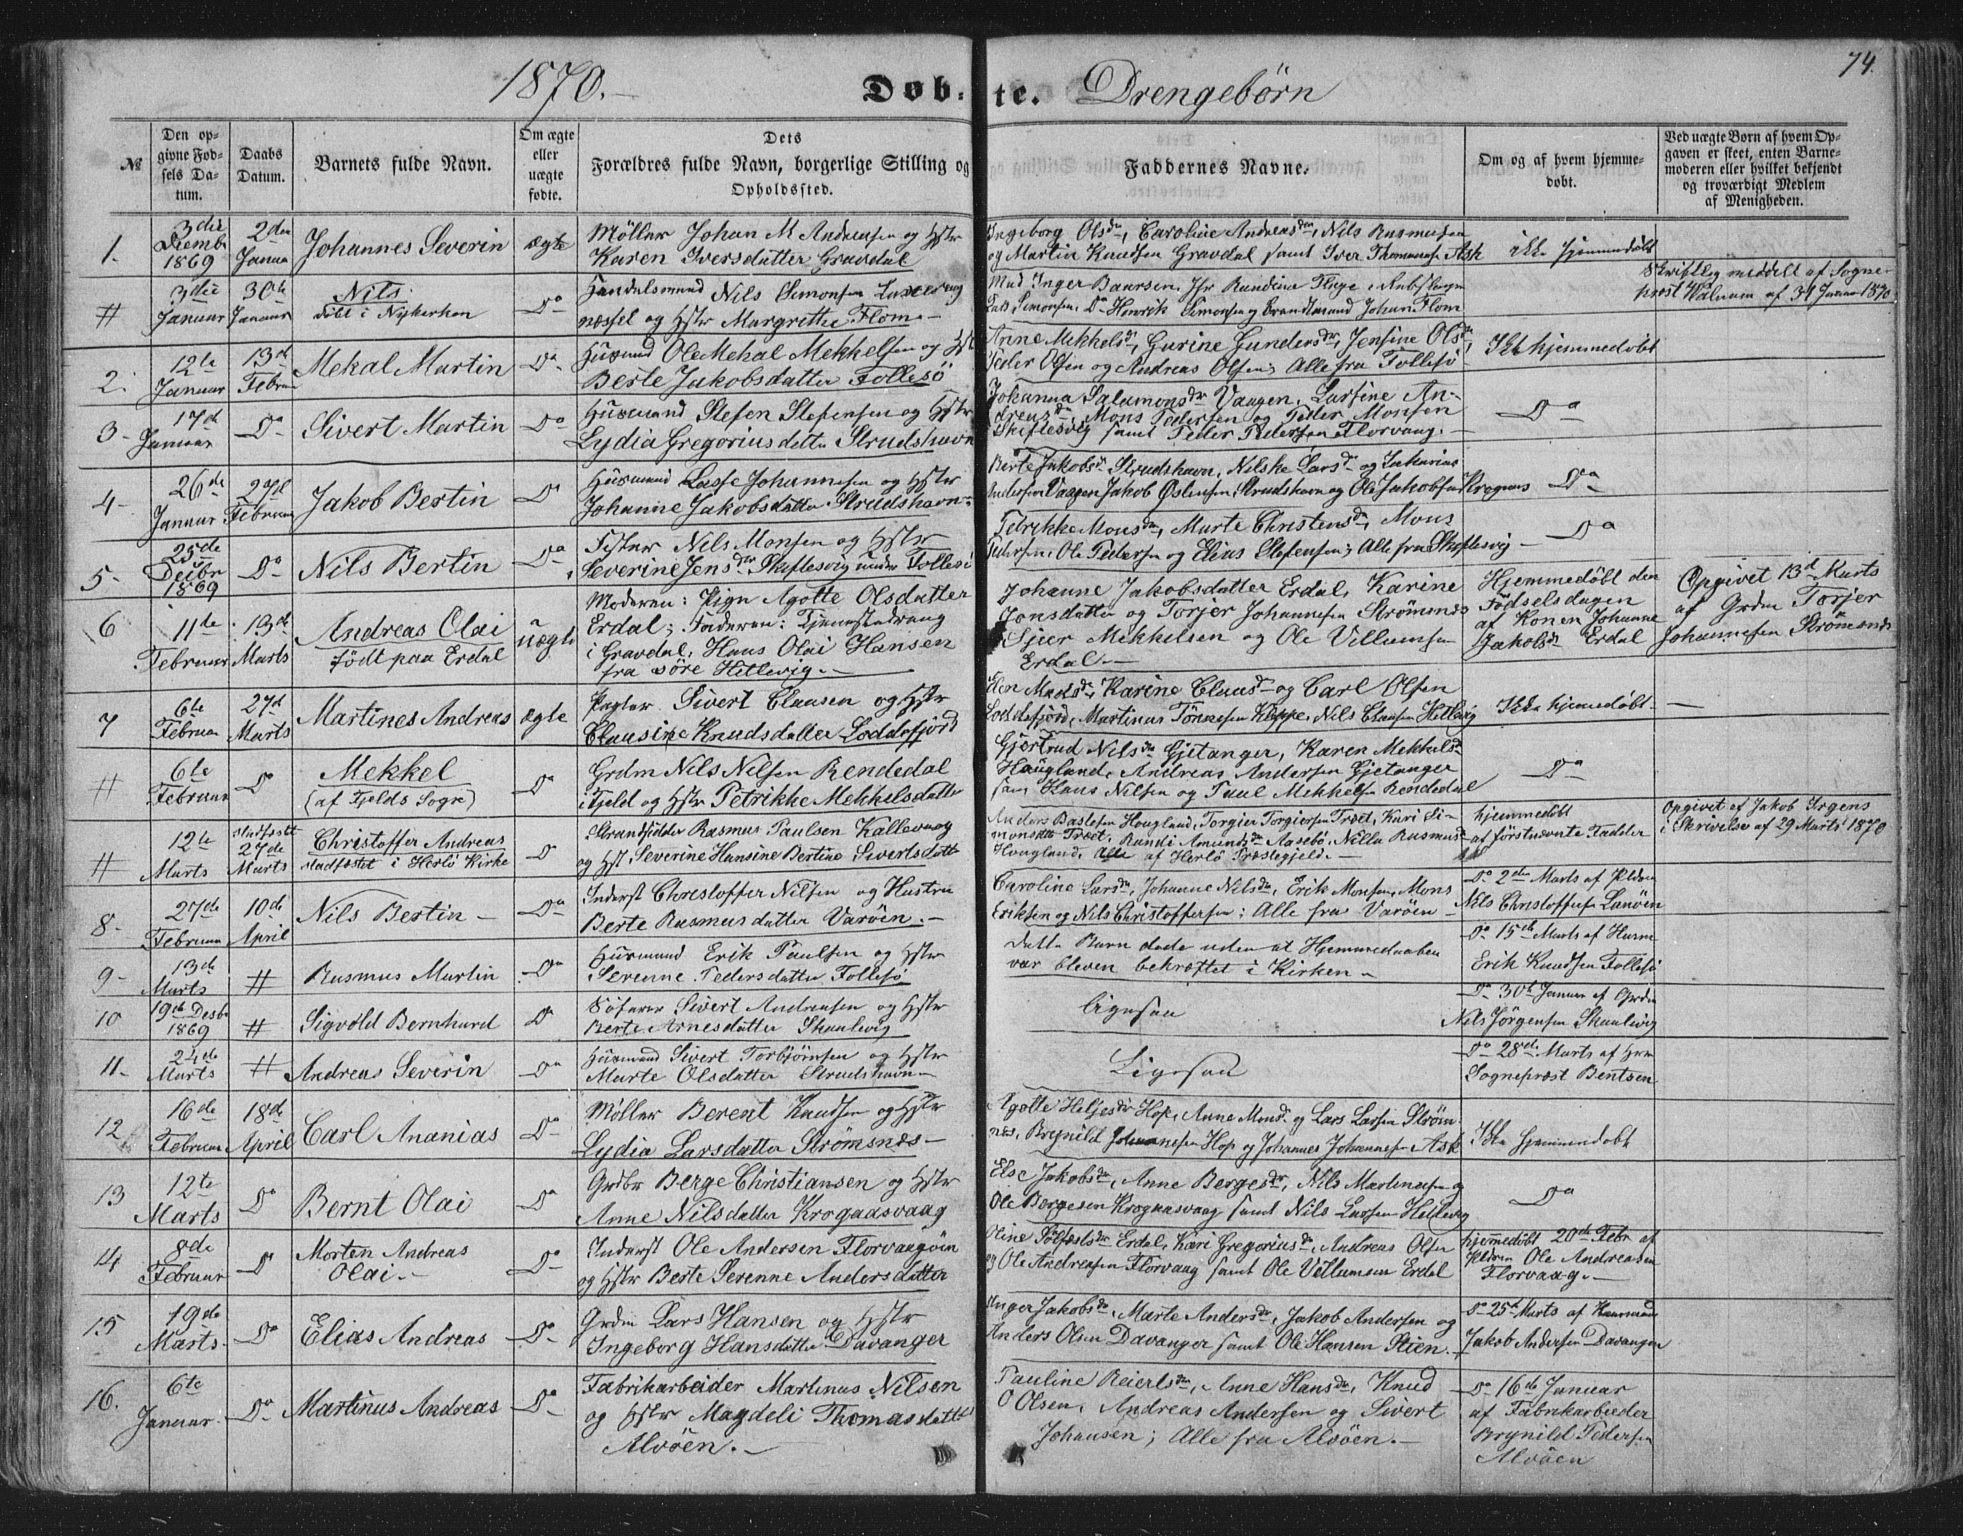 74.
1870.-
Døbte. Drengebørn
№
Den opgivne Fødsels Datum.
Daabs Datum.
Barnets fulde Navn.
Om ægte eller uægte fødte.
Dets Forældres fulde Navn, borgerlige Stilling og Opholdssted.
Faddernes Navne.
Om og af hvem hjemmedøbt.
Ved uægte Børn af hvem Opgaven er skeet, enten Barnemoderen eller hvilket bekjendt og troværdigt Medlem af Menigheden.
1. 3die Decmbr 1869 2den Januar Johannes Severin ægte Møller Johan M Andreasen og Hstr
Karen Iversdatter Gravdal
Ingeborg Olsdr, Caroline Andreasdr, Nils Rasmusen
og Martin Knudsen Gravdal samt Iver Thomasen Ask
ikke hjemmedøbt
# 3die Januar 30te Januar Nils
døbt i Nykirken
Do Handelsmand Nils Simonsen
og Hstr Margrethe Flom -
Mad Inger Baarsen, Jfr Rundine
Simonsen, Do Henrik Simonsen og Brandtmand Johan Flom
Skriftlig meddelt af Sogneprest Walnum af 31 Januar 1870
2. 12te Januar 13de Februar Mekal Martin Do Husmand Ole Mehal Mekkelsen og Hst
Berte Jakobsdatter Follesø
Anne Mekkelsdr, Gurine Gundersdr, Jensine Olsdr,
Peder Olsen og Andreas Olsen; Alle fra Follesø
Ikke hjemmedøbt
3- 17de Januar Do Sivert Martin Do Husmand Stefen Stefensen og Hstr
Lydia Gregoriusdatter Strudshavn
Johanna Salamonsdr Vaagen, Lartine Andreasdr, Mons Pedersen og Peder Monsen
Skiftesvig samt Peder Pedersen Florvaag.-
Do
4- 26de Januar 27de Februar Jakob Bertin Do Husmand Lasse Johannesen og Hstr
Johanne Jakobsdatter Strudshavn-
Berte Jakobsdr Strudshavn, Nilske Larsdr og Zakarias
Andersen Vaagen, Jakob Østensen Strudshavn og Ole Jakobsen Krognæs
Do
5- 25de Decbr 1869 Do Nils Bertin Do Fisker Nils Monsen og Hstr
Severine Jensdr Skiftesvig under Follesø
Petrikke Monsdr, Marte Christensdr, Mons
Pedersen, Ole Pedersen og Elias Stefensen; Alle fra Skiftesvig -
Do
6 11te Februar 13de Marts Andreas Olai
født paa Erdal
uægte Moderen: Pigen Agotte Olsdatter
Erdal; Faderen: Tjenestedreng
i Gravdal, Hans Olai Hansen
fra søre Hetlevig.-
Johanne Jakobsdatter Erdal, Karine
Jonsdatter og Torjer Johannesen Strømsnes
Sjur Mekkelsen og Ole Villumsen
Erdal.-
Hjemmedøbt den
Fødselsdagen
af Konen Johanne
Jakobsdr Erdal
Opgivet 13de Marts
af Grdm Torjer
Johannesen Strømsnes
7 6te Februar 27de Marts Martines Andreas ægte Sivert Clausen og Hstr
Clausine Knudsdatter Loddefjord
Madsdr, Karine Clausdr og Carl Olsen
Loddefjord, Martinus Tønnesen Kleppe, Nils Clausen Hetlevig
Ikke hjemmedøbt- -
# 6te Februar Do Mekkel
(af Fjelds Sogn)
Do Grdm Nils Nilsen Rendedal
i Fjeld og Hstr Petrikke Mekkelsdatter
Gjertrud Nilsdr Gjetanger, Karen Mekkelsdr
Haugland, Andreas Andersen Gjetanger
samt Hans Nilsen og Paul Mekkelsen Rendedal
Do
# 12te Marts stadfæstt 27de Marts Christoffer Andreas
stadfæstet i Herlø Kirke
Do Strandsidder Rasmus Paulsen Kallevaag
og Hst. Severine Hansine Bertine Sivertsdatter
Anders Haugland, Torgier Torgiersen Træt, Kari Simonsdtr Træt, Randi Amundsdr Aasebø, Nilla Rasmusdr
Haugland, Alle af Herlø Præstegjeld.-
hjemmedøbt
af førstnævnte Fadder
Opgivet af Jakob Irgens
i Skrivelse af 29 Marts 1870
8- 27de Februar 10de April Nils Bertin - Do Inderst Christoffer Nilsen og Hustru
Berte Rasmusdatter Varøen.-
Caroline Larsdr, Johanne Nilsdr, Erik Monsen, Mons
Eriksen og Nils Christoffersen; Alle fra Varøen -
Do 2den Marts af
Nils Christoffersen
9- 13de Marts # Rasmus Martin Do Husmand Erik Paulsen og Hstr
Serenne Pedersdatter Follesø
Dette Barn døde uden at Hjemmedaaben
var bleven bekræftet i Kirken -
Do 15de Marts af Husm
Erik Knudsen Follesø
10 19de Decbr 1869 # Sigvold Bernhard Do Søfarer Sivert Andreasen og Hstr
Berte Arnesdatter Skaalevig
Ligesaa
Do 30te Januar af Grdm
Nils Jørgensen Skaalevig
11- 24de Marts # Andreas Severin Do Husmand Sivert Torbjørnsen og Hstr
Marte Olsdatter Strudshavn-
Ligesaa
Do 28de Marts af Hrr
Sogneprest Bentsen
12 16de Februar 18de April Carl Ananias Do Møller Berent Knudsen og Hstr
Lydia Larsdatter Strømsnes-
Agotte Heljesdr Hop, Anne Monsdr og Lars Larsen Strømnes, Brynild Johannesen Hop og Johannes Johannesen Ask
Ikke hjemmedøbt
13 12te Marts Do Bernt Olai Do Grdbr Berge Christiansen og Hstr
Anne Nilsdatter Krogaasvaag
Else Jakobsdr, Anne Bergesdr, Nils Martinesen og
Ole Bergesen Krogaasvaag samt Nils Larsen Hetlevig
Do
14 8de Februar Do Morten Andreas
Olai.-
Do Inderst Ole Andersen Florvaagøen
og Hstr Berte Serenne Andersdatter
Oline Erdal, Kari Gregoriusdr, Andreas Olsen
og Ole Andreasen Florvaag samt Ole Villumsen Erdal
hjemmedøbt 20de Febr af
Ole Andreasen
Florvaag.-
15 19de Marts. Do Elias Andreas Do Grdm Lars Hansen og Hstr
Ingeborg Hansdatter Davanger
Inger Jakobsdr, Marte Andersdr, Jakob Andersen og
Anders Olsen Davanger samt Ole Hansen Stien.-
Do 25de Marts af Huusmand
Jakob Andersen Davanger
16. 6te Januar. Do Martinus Andreas Do Fabrikarbeider Martinus Nilsen
og Hstr Magdeli Thomasdatter
Alvøen.-
Pauline Reiertsdr, Anne Hansdr, Knud
O Olsen, Andreas Andersen og Sivert
Johansen; Alle fra Alvøen.-
Do 16de Januar
af Fabrikarbeider
Brynild Pedersen
Alvøen